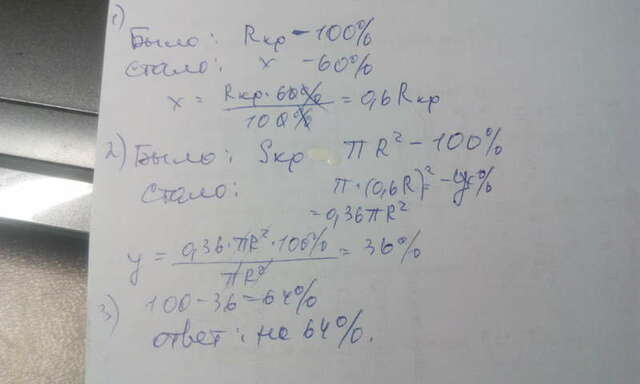 1)
Было: Rкр - 100%
Стало: x - 60%
x = Rкр · 60% / 100% = 0,6 Rкр
2) Было: Sкр πR² - 100%
Стало: π·(0,6R)² - y%
= 0,36πR²
y = 0,36·πR²·100% / πR² = 36%
3) 100 - 36 = 64%
ответ: на 64%.